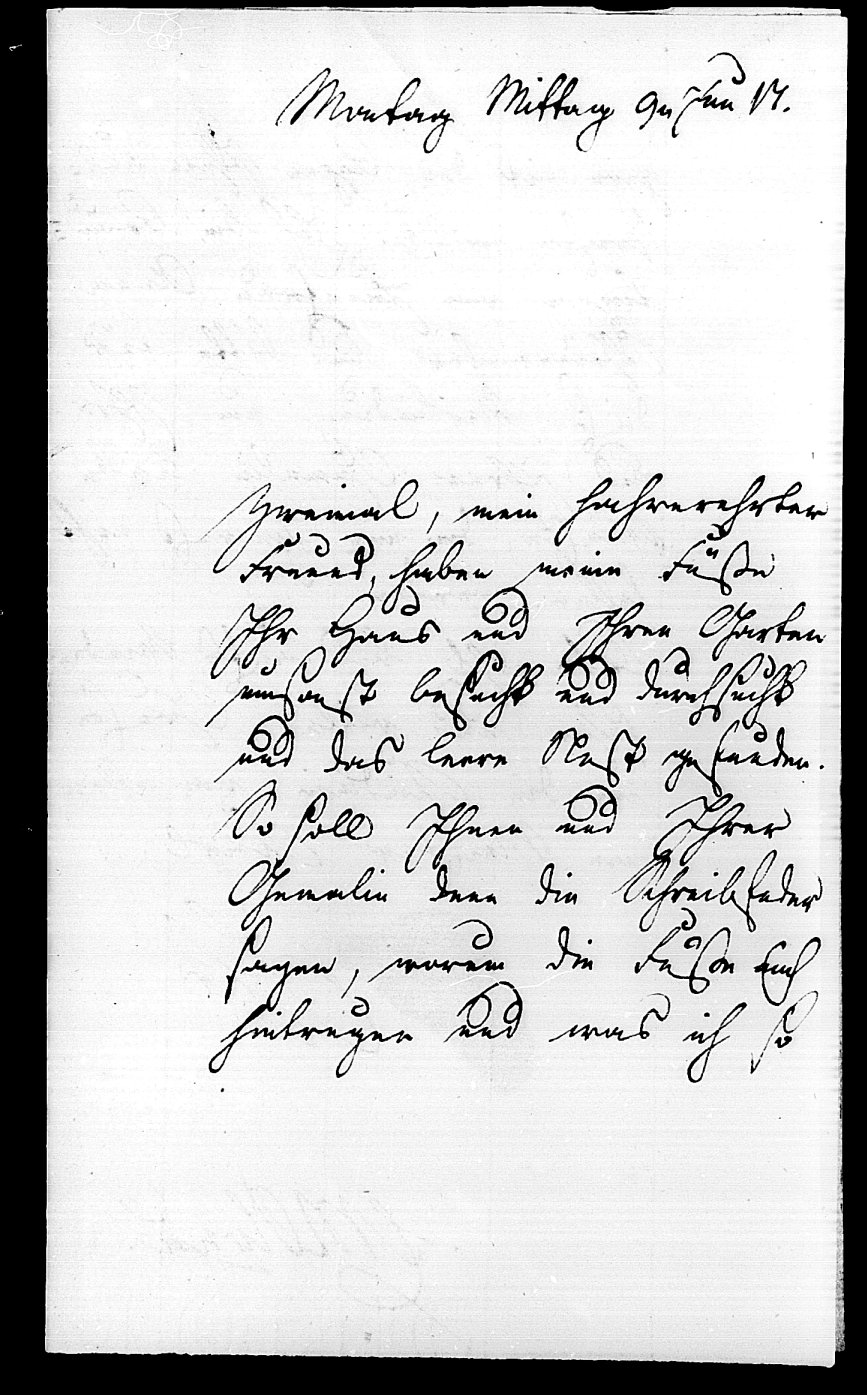 Montag Mittag 9 Jun 17.
Zweimal, mein hochverehrter
Freund, haben meine Füße
Ihr Haus und Ihren Garten
umsonst besucht und durchsucht
und das leere Nest gefunden.
So soll Ihnen und Ihrer
Gemalin denn die Schreibfeder
sagen, warum die Füße mich
hintrugen und was ich so